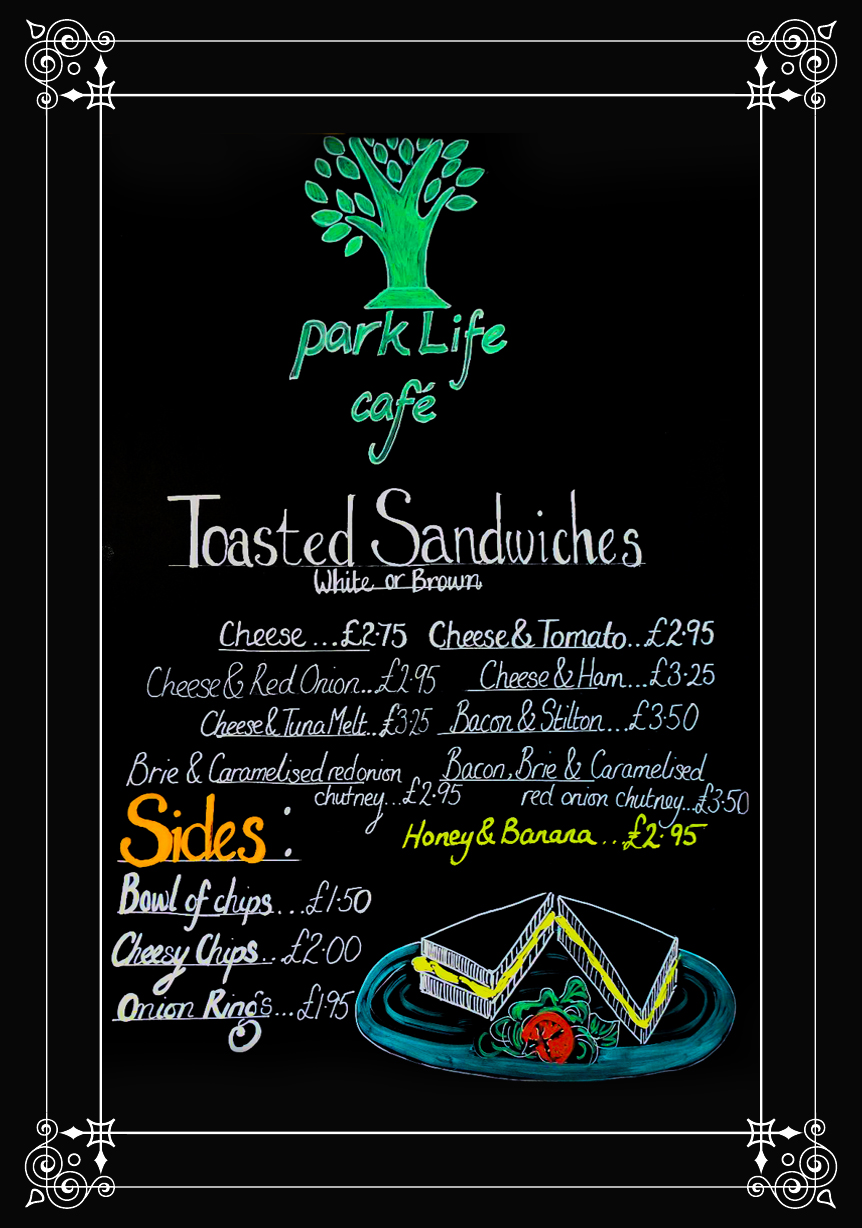 park Life
café
Toasted Sandwiches
White or Brown
Cheese ...£2.75 Cheese & Tomato...£2.95
Cheese & Red Onion...£2.95 Cheese & Ham...£3.25
Cheese & Tuna Melt...£3.25 Bacon & Stilton...£3.50
Brie & Caramelised red onion Bacon, Brie & Caramelised
chutney...£2.95 red onion chutney...£3.50
Sides :
Honey & Banana...£2.95
Bowl of chips...£1.50
Cheesy Chips...£2.00
Onion Rings...£1.95